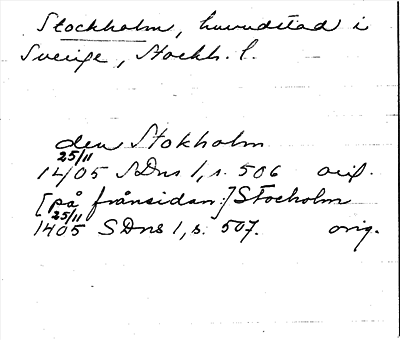 Stockholm, huvudstad i
Sverige, Stockh. l.
den Stokholm
25/11
1405 SDns 1, s. 506 orig.
[på frånsidan:] Stocholm
25/11
1405 SDns 1, s. 507. orig.